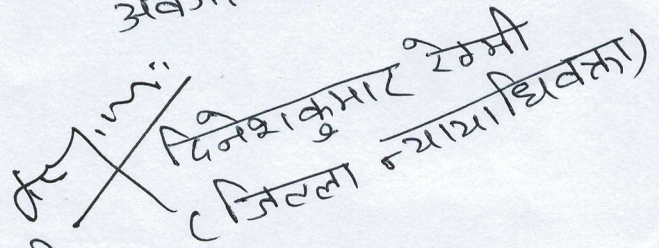 दिनेशकुमार रेग्मी
(जिल्ला न्यायाधिवक्ता)